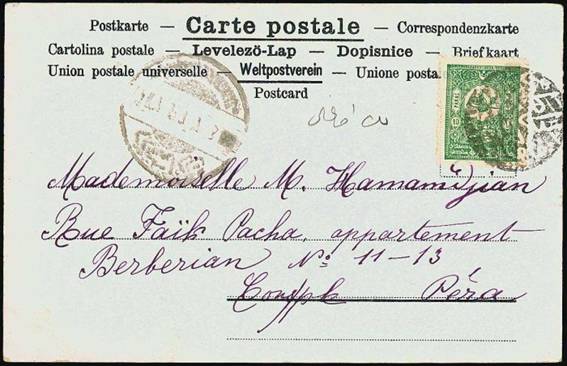 Postkarte — Carte postale — Correspondenzkarte
Cartolina postale — Levelezö-Lap — Dopisnice — Briefkaart
Union postale universelle — Weltpostverein — Unione posta
Postcard
Mademoiselle M. Hamamdjian
Rue Faïk Pacha, appartement
Berberian No 11–13
Péra